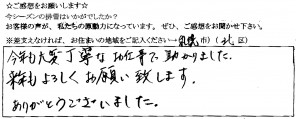 ☆ご感想をお願いします☆
今シーズンの排雪はいかがでしたか?
お客様の声が、私たちの原動力になっています。ぜひ、ご感想をお聞かせ下さい。
※差支えなければ、お住まいの地域をご記入ください→(札幌市)(北区)
今年も大変丁寧なお仕事で助かりました。
来年もよろしくお願い致します。
ありがとうございました。